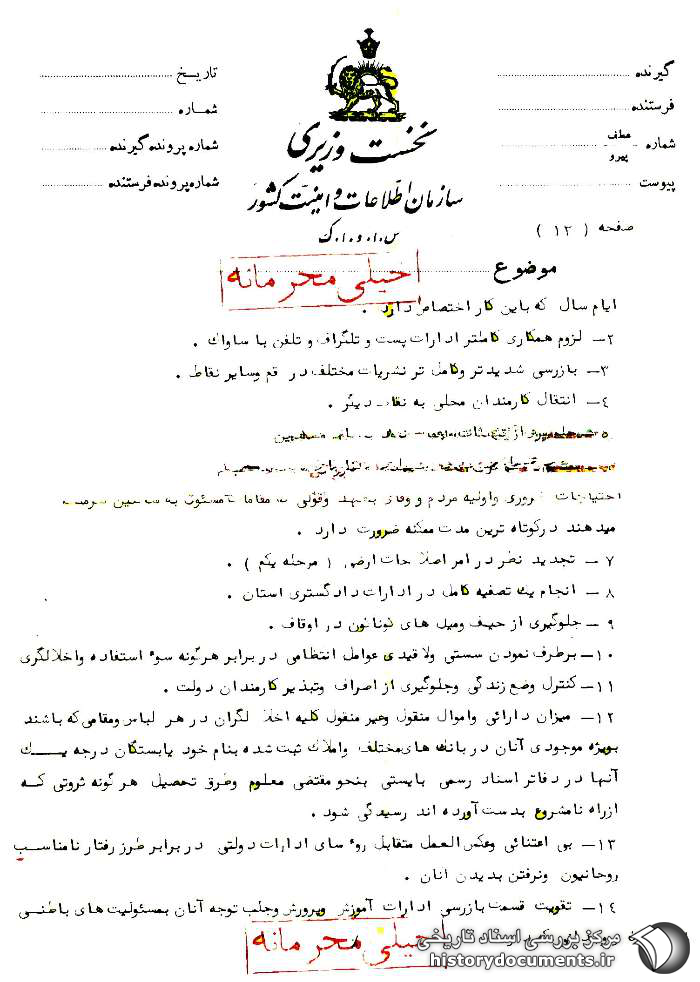 گیرنده
فرستنده
شماره عطف پیرو
پیوست
تاریخ
شماره
شماره پرونده گیرنده
شماره پرونده فرستنده
نخست وزیری
سازمان اطلاعات و امنیت کشور
س.ا.و.ا.ک
صفحه ( ۱۲ )
موضوع
خیلی محرمانه
ایام سال که باین کار اختصاص دارد .
۲– لزوم همکاری کاملتر ادارات پست و تلگراف و تلفن با ساواک .
۳– بازرسی شدیدتر وکامل تر نشریات مختلف در قم وسایر نقاط .
۴– انتقال کارمندان محلی به نقاط دیگر .
احتیاجات ضروری واولیه مردم و وفای بعهد وقولی که مقامات مسئول به
میدهند درکوتاه ترین مدت ممکنه ضرورت دارد .
۷– تجدید نظر در امر اصلاحات ارضی ( مرحله یکم ) .
۸– انجام یک تصفیه کامل در ادارات دادگستری استان .
۹–جلوگیری از حیف ومیل های گوناگون در اوقاف .
۱۰–برطرف نمودن سستی ولاقیدی عوامل انتظامی در برابر هرگونه سوء استفاده واخلالگری
۱۱–کنترل وضع زندگی وجلوگیری از اصراف وتبذیر کارمندان دولت .
۱۲– میزان دارائی واموال منقول وغیر منقول کلیه اخلالگران در هر لباس ومقامی که باشند
بویژه موجودی آنان در بانک های مختلف واملاک ثبت شده بنام خود یابستگان درجه یک
آنها در دفاتر اسناد رسمی بایستی بنحو مقتضی معلوم وطرق تحصیل هرگونه ثروتی که
ازراه نامشروع بدست آورده اند رسیدگی شود .
۱۳– بی اعتنائی وعکس العمل متقابل روءسای ادارات دولتی در برابر طرز رفتار نامناسب
روحانیون ونرفتن بدیدن آنان .
۱۴– تقویت قسمت بازرسی ادارات آموزش وپرورش وجلب توجه آنان بمسئولیت های باطنی
خیلی محرمانه
مرکز بررسی اسناد تاریخی
historydocuments.ir